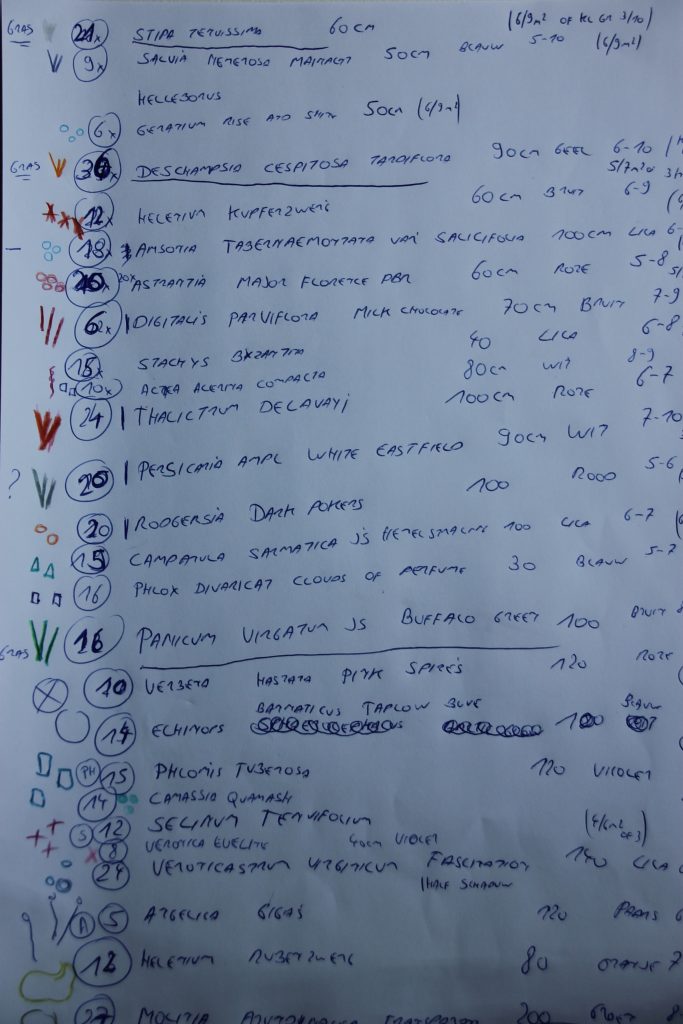 GRAS 21x STIPA TENUISSIMA 60cm (6/9m² OF KL GR 3/10)
9x SALVIA NEMEROSA MAINACHT 50cm BLAUW 5-10 (6/9m²)
HELLEBORUS
6x GERANIUM RISE AND SHINE 50cm (6/9m²)
GRAS 36x DESCHAMPSIA CESPITOSA TARDIFLORA 90cm GEEL 6-10
5/7m²
12x HELENIUM KUPFERZWERG 60cm BRUIN 6-9
18x AMSONIA TABERNAEMONTANA VAR SALICIFOLIA 100cm LILA 6-
20x ASTRANTIA MAJOR FLORENCE PBR 60cm ROZE 5-8
6 DIGITALIS PARVIFLORA MILK CHOCOLATE 70cm BRUIN 7-9
15x STACHYS BYZANTINA 40 LILA 6-8
10x ACTEA ACERINA COMPACTA 80cm WIT 8-9
24 THALICTRUM DELAVAYI 100cm ROZE 6-7
? 20 PERSICARIA AMPL WHITE EASTFIELD 90cm WIT 7-10
20 RODGERSIA DARK POKERS 100 ROOD 5-6
15 CAMPANULA SARMATICA JS HEMELSMACHINE 100 LILA 6-7
16 PHLOX DIVARICAT CLOUDS OF PERFUME 30 BLAUW 5-7
GRAS 16 PANICUM VIRGATUM JS BUFFALO GREEN 100 BRUIN 8
10 VERBENA HASTATA PINK SPIRES 120 ROZE
BANNATICUS TAPLOW BLUE BLAUW
14 ECHINOPS 100
PH 15 PHLOMIS TUBEROSA 120 VIOLET
14 CAMASSIA QUAMASH
S 12 SELINUM TENUIFOLIUM (4/6m² OF 3)
8 VERONICA EVELINE 40cm VIOLET
24 VERONICASTRUM VIRGINICUM FASCINATION 140 LILA
HALF SCHADUW
A 5 ANGELICA GIGAS 120 PAARS 6
12 HELENIUM RUBINZWERG 80 ORANJE 7
27 MOLINIA ARUNDINACEA TRANSPARENT 200 GROEN 8-